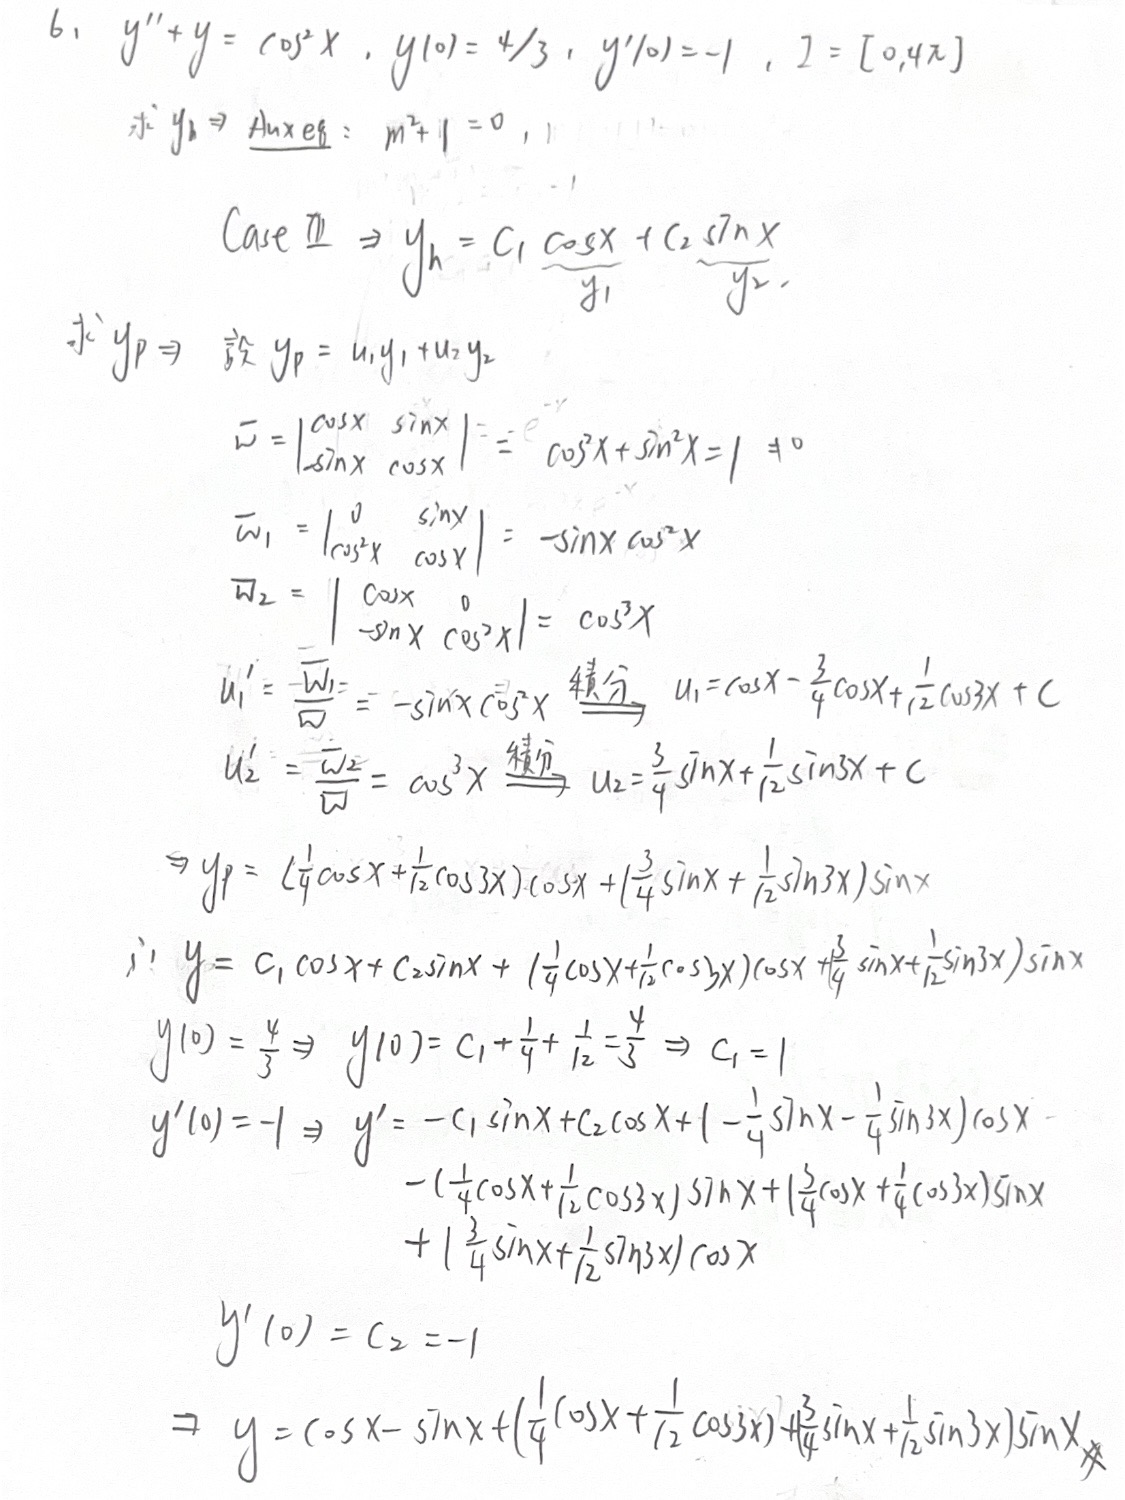 6. y'' + y = cos²x , y(0) = 4/3 , y'(0) = -1 , I = [0,4π]
求 yh ⇒ Aux eq : m² + 1 = 0 ,
Case III ⇒ yh = C₁ cosx + C₂ sinx
y₁ y₂.
求 yp ⇒ 設 yp = u₁y₁ + u₂y₂
W = |cosx sinx; -sinx cosx| = cos²x + sin²x = 1 ≠ 0
W₁ = |0 sinx; cos²x cosx| = -sinx cos²x
W₂ = |cosx 0; -sinx cos²x| = cos³x
u₁' = W₁/W = -sinx cos²x 積分⇒ u₁ = cosx - 3/4 cosx + 1/12 cos3x + C
u₂' = W₂/W = cos³x 積分⇒ u₂ = 3/4 sinx + 1/12 sin3x + C
⇒ yp = (1/4 cosx + 1/12 cos3x) cosx + (3/4 sinx + 1/12 sin3x) sinx
∴ y = C₁ cosx + C₂ sinx + (1/4 cosx + 1/12 cos3x) cosx + (3/4 sinx + 1/12 sin3x) sinx
y(0) = 4/3 ⇒ y(0) = C₁ + 1/4 + 1/12 = 4/3 ⇒ C₁ = 1
y'(0) = -1 ⇒ y' = -C₁ sinx + C₂ cosx + (-1/4 sinx - 1/4 sin3x) cosx
-(1/4 cosx + 1/12 cos3x) sinx + (3/4 cosx + 1/4 cos3x) sinx
+ (3/4 sinx + 1/12 sin3x) cosx
y'(0) = C₂ = -1
⇒ y = cosx - sinx + (1/4 cosx + 1/12 cos3x) + (3/4 sinx + 1/12 sin3x) sinx #